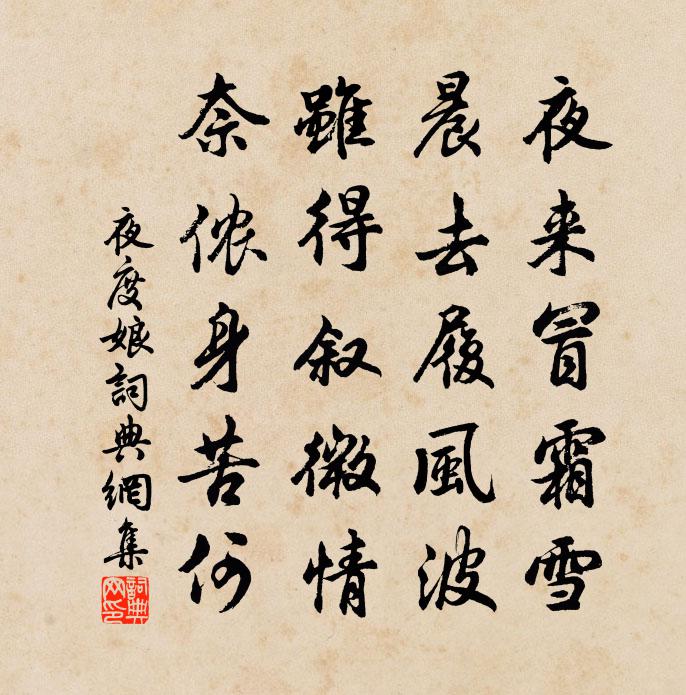 夜来冒霜雪
晨去履風波
雖得叙微情
奈侬身苦何
夜度娘詞典網集
詞典網印